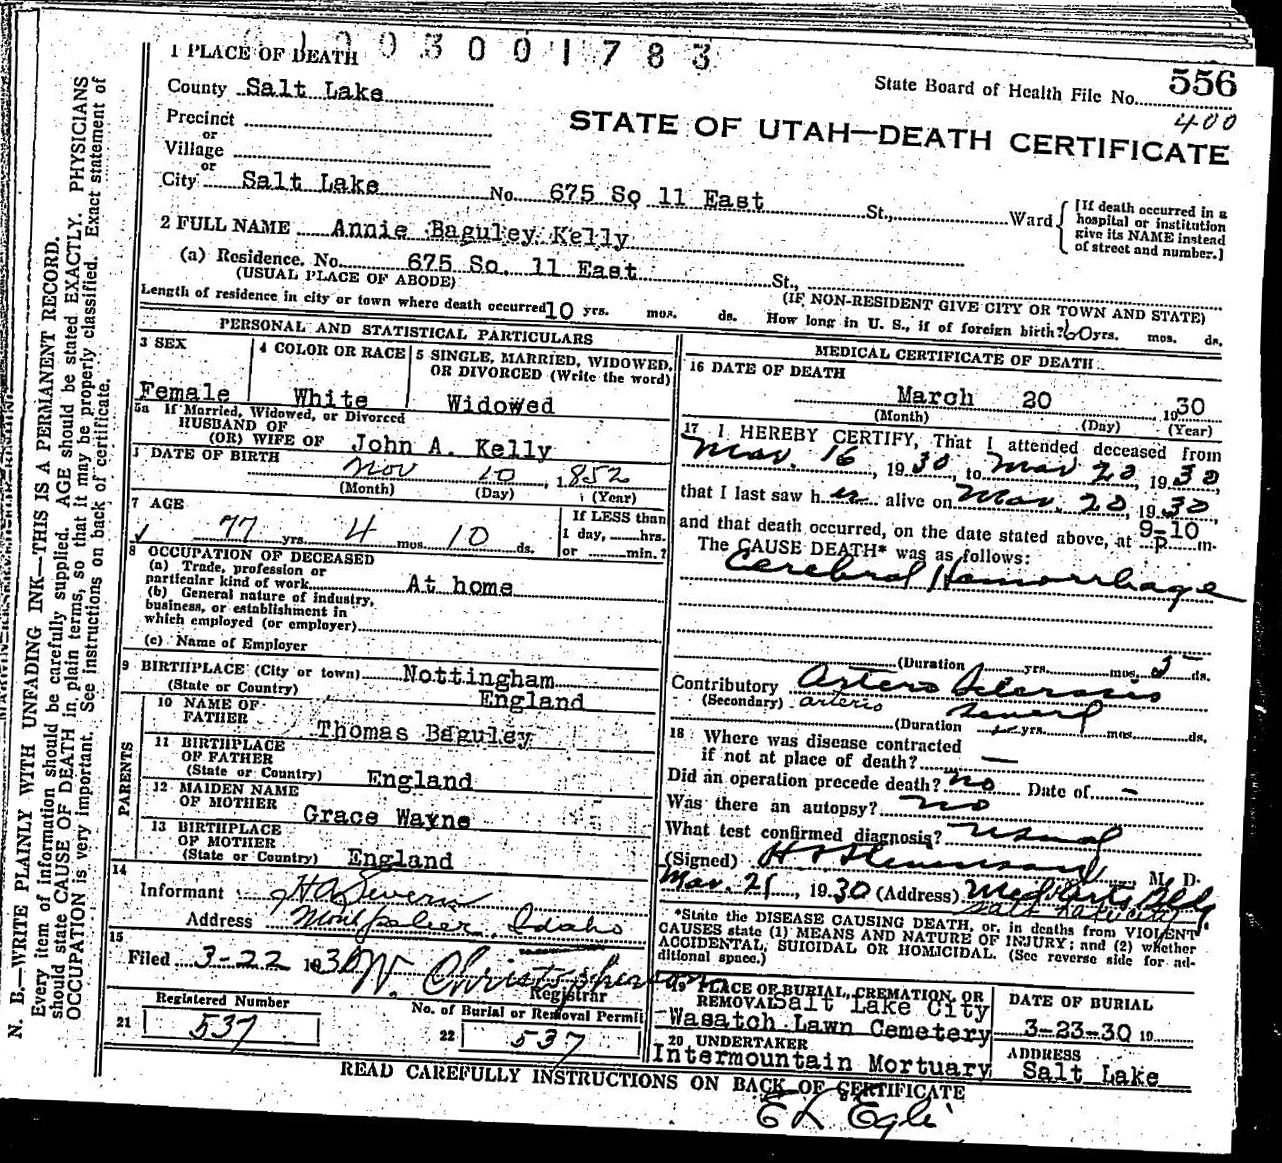 3001783
1 PLACE OF DEATH
State Board of Health File No. 556
400
County Salt Lake
STATE OF UTAH—DEATH CERTIFICATE
Precinct
or
Village
or
City Salt Lake No. 675 So 11 East St., Ward
[If death occurred in a
hospital or institution
give its NAME instead
of street and number.]
2 FULL NAME Annie Baguley Kelly
(a) Residence. No. 675 So. 11 East St.,
(USUAL PLACE OF ABODE)
(IF NON-RESIDENT GIVE CITY OR TOWN AND STATE)
Length of residence in city or town where death occurred 10 yrs. mos. ds. How long in U. S., if of foreign birth? 60 yrs. mos. ds.
PERSONAL AND STATISTICAL PARTICULARS
3 SEX
Female
4 COLOR OR RACE
White
5 SINGLE, MARRIED, WIDOWED,
OR DIVORCED (Write the word)
Widowed
5a If Married, Widowed, or Divorced
HUSBAND OF
(OR) WIFE OF John A. Kelly
DATE OF BIRTH
Nov 10, 1852
(Month) (Day) (Year)
7 AGE
77 yrs. 4 mos. 10 ds.
If LESS than
1 day, hrs.
or min.?
8 OCCUPATION OF DECEASED
(a) Trade, profession or
particular kind of work At home
(b) General nature of industry,
business, or establishment in
which employed (or employer)
(c) Name of Employer
9 BIRTHPLACE (City or town) Nottingham
(State or Country) England
PARENTS
10 NAME OF
FATHER Thomas Baguley
11 BIRTHPLACE
OF FATHER
(State or Country) England
12 MAIDEN NAME
OF MOTHER Grace Wayne
13 BIRTHPLACE
OF MOTHER
(State or Country) England
14
Informant H A Severn
Address Montpelier, Idaho
15
Filed 3-22 1930 W. Christopherson
Registrar
Registered Number
21 537
No. of Burial or Removal Permit
22 537
MEDICAL CERTIFICATE OF DEATH
16 DATE OF DEATH
March 20 1930
(Month) (Day) (Year)
17 I HEREBY CERTIFY, That I attended deceased from
Mar. 16, 1930, to Mar 20, 1930,
that I last saw her alive on Mar. 20, 1930,
and that death occurred, on the date stated above, at 9-10 p m.
The CAUSE DEATH* was as follows:
Cerebral Hemorrhage
(Duration yrs. mos. 5 ds.
Contributory Artero Sclerosis
(Secondary) arterio several
(Duration yrs. mos. ds.
18 Where was disease contracted
if not at place of death? —
Did an operation precede death? no Date of —
Was there an autopsy? no
What test confirmed diagnosis? usual
(Signed) M. D.
Mar. 21, 1930 (Address) Med Arts Bldg
Salt Lake City
*State the DISEASE CAUSING DEATH, or, in deaths from VIOLENT
CAUSES state (1) MEANS AND NATURE OF INJURY; and (2) whether
ACCIDENTAL, SUICIDAL OR HOMICIDAL. (See reverse side for ad-
ditional space.)
19 PLACE OF BURIAL, CREMATION, OR
REMOVAL Salt Lake City
Wasatch Lawn Cemetery
DATE OF BURIAL
3-23-30 19
20 UNDERTAKER
Intermountain Mortuary
ADDRESS
Salt Lake
READ CAREFULLY INSTRUCTIONS ON BACK OF CERTIFICATE
E L Egli
N. B.—WRITE PLAINLY WITH UNFADING INK—THIS IS A PERMANENT RECORD.
Every item of information should be carefully supplied. AGE should be stated EXACTLY. PHYSICIANS
should state CAUSE OF DEATH in plain terms, so that it may be properly classified. Exact statement of
OCCUPATION is very important. See instructions on back of certificate.